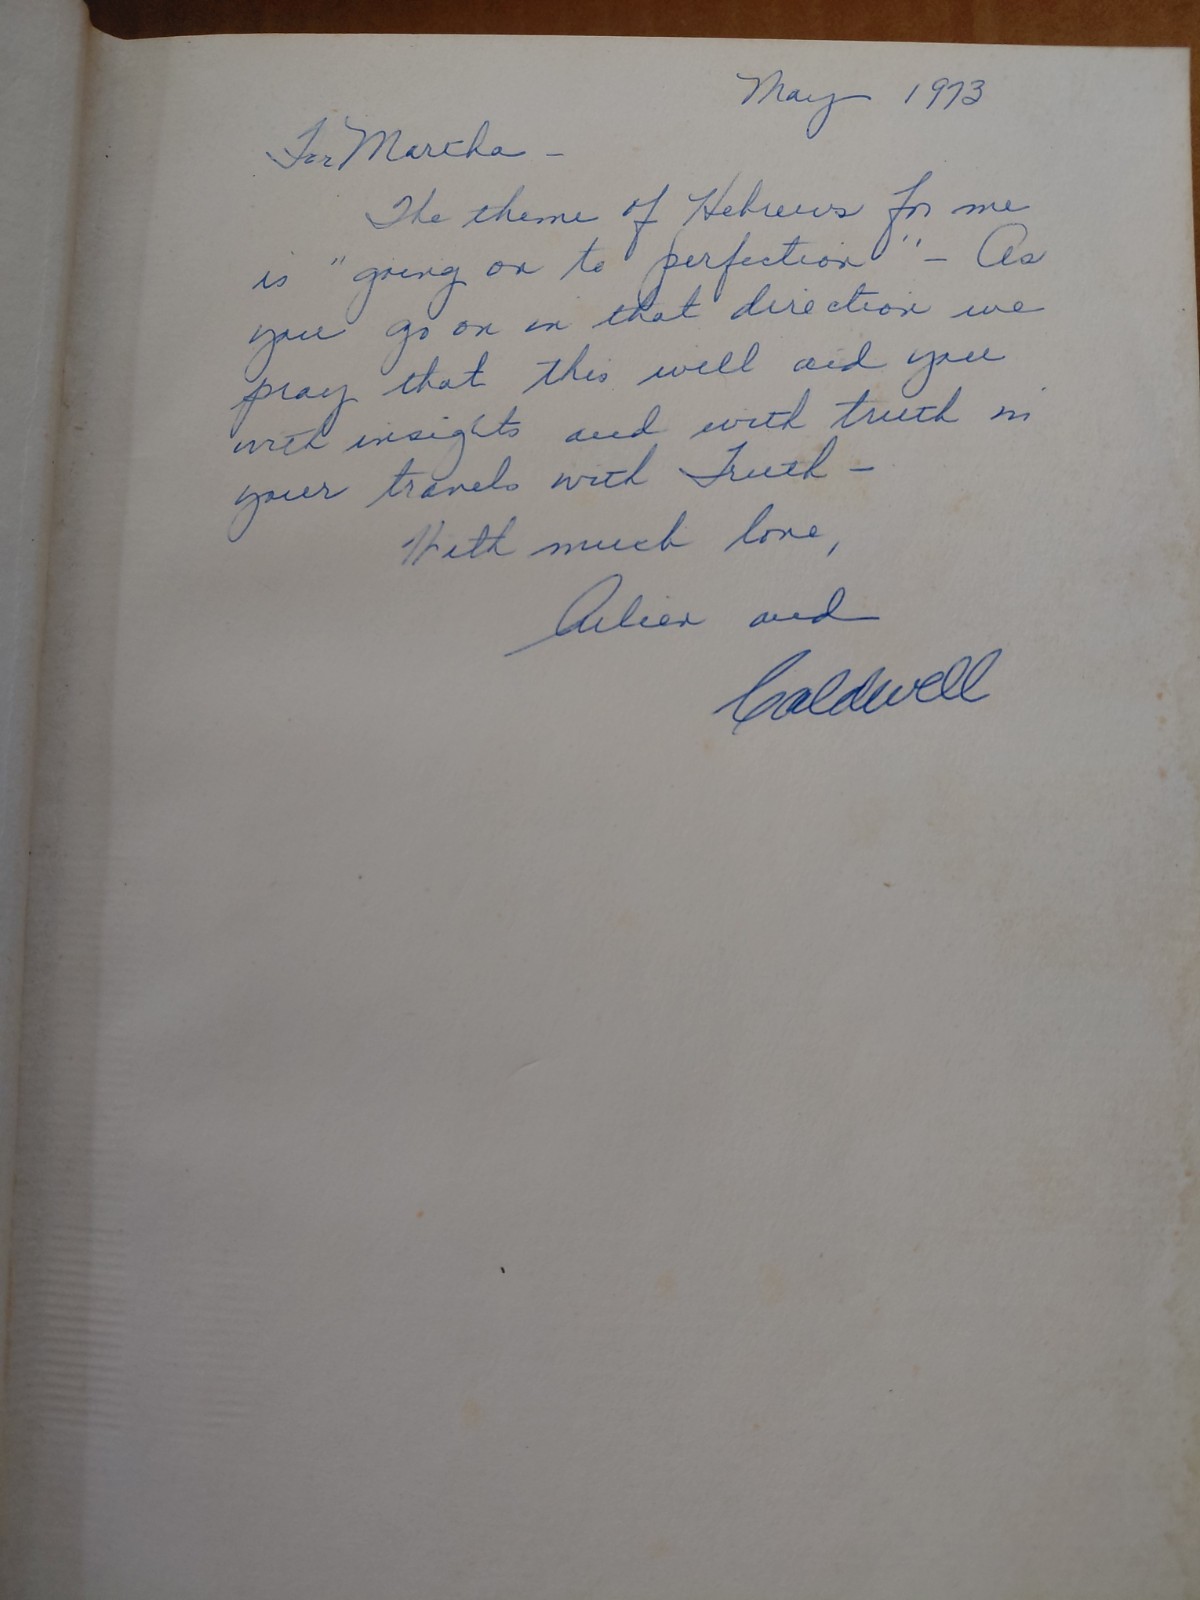 May 1973
For Martha -
The theme of Hebrews for me
is "going on to perfection" - As
you go on in that direction we
pray that this will aid you
with insights and with truth in
your travels with Truth -
With much love,
and
Caldwell